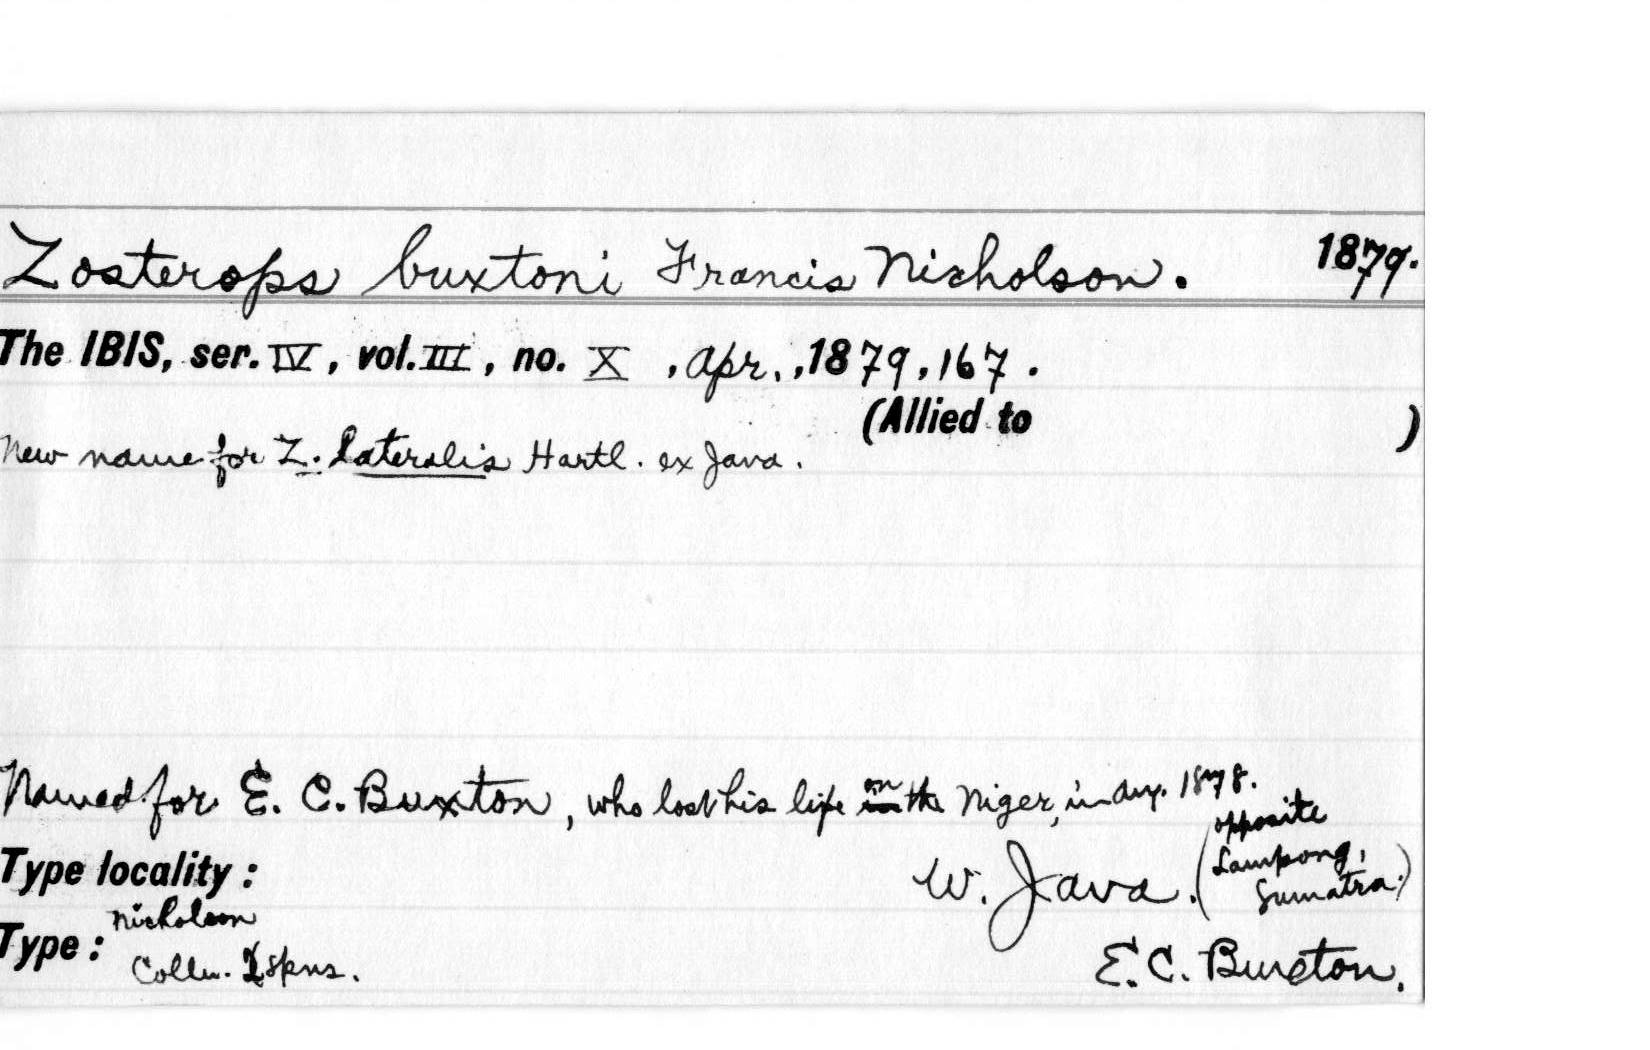 Zosterops buxtoni Francis Nicholson. 1879.
The IBIS, ser. IV, vol. III, no. X, Apr., 1879, 167.
(Allied to )
New name for Z. lateralis Hartl. ex Java.
Named for E. C. Buxton, who lost his life on the Niger, in Aug. 1878.
Type locality: W. Java. (opposite
Lampong,
Sumatra.)
Type: Nicholson
Colln. 2 spns. E. C. Buxton.